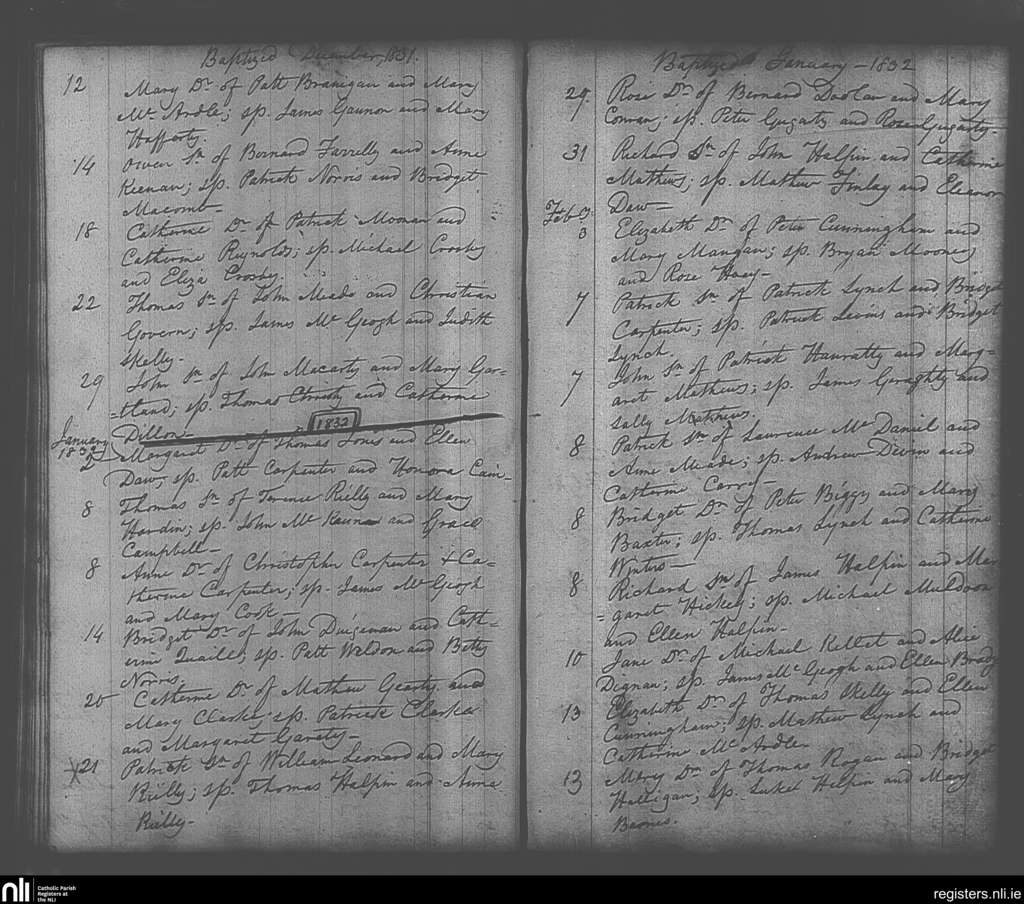 Baptized December, 1831.
12 Mary Dr. of Patt Branigan and Mary
Mc. Ardle; sp. James Gaunon and Mary
Hafferty.
14 Owen Sn. of Bernard Farrelly and Anne
Keenan; sp. Patrick Norris and Bridget
Macomb-
18 Catherine Dr. of Patrick Moonan and
Catherine Reynolds; sp. Michael Crosby
and Eliza Crosby.
22 Thomas Sn. of John Meade and Christian
Govern; sp. James Mc Geogh and Judith
Skelly.
29 John Sn. of John Macarty and Mary Gar=
=tland; sp. Thomas Christy and Catherine
1832
Dillon-
January 1832
2 Margaret Dr. of Thomas Jones and Ellen
Daw; sp. Patt Carpenter and Honora Cain-
8 Thomas Sn. of Terence Rielly and Mary
Hardin; sp. John Mc and Grace
Campbell-
8 Anne Dr. of Christopher Carpenter & Ca=
therine Carpenter; sp. James Mc Geogh
and Mary Cook-
14 Bridget Dr. of John Duigenan and Cath=
erine Quaill; sp. Patt Weldon and Betty
Norris.
20 Catherine Dr. of Mathew Gearty and
Mary Clarke; sp. Patrick Clarke
and Margaret Garety-
X21 Patrick Sn. of William Leonard and Mary
Rielly; sp. Thomas Halpin and Anne
Rielly-
Baptized January-1832
29 Rose Dr. of Bernard Doolan and Mary
Conran; sp. Peter Gugarty and Rose Gugarty-
31 Richard Sn. of John Halpin and Catherine
Mathews; sp. Mathew Finlay and Eleanor
Daw-
Feb.y
3 Elizabeth Dr. of Peter Cunningham and
Mary Mangan; sp. Bryan Mooney
and Rose Hoey-
7 Patrick Sn. of Patrick Lynch and Bridget
Carpenter; sp. Patrick Levins and Bridget
Lynch.
7 John Sn. of Patrick Hanratty and Marg=
aret Mathews; sp. James Geraghty and
Sally Mathews.
8 Patrick Sn. of Laurence Mc Daniel and
Anne Meade; sp. Andrew Devin and
Catherine
8 Bridget Dr. of Peter Biggy and Mary
Baxter; sp. Thomas Lynch and Catherine
Winters-
8 Richard Sn. of James Halpin and Mar
=garet Hickey; sp. Michael Muldoon
and Ellen Halpin-
10 Jane Dr. of Michael Kellet and Alice
Dignan; sp. James Mc Geogh and Ellen Brady
13 Elizabeth Dr. of Thomas Skelly and Ellen
Cunningham; sp. Mathew Lynch and
Catherine Mc Ardle-
13 Mary Dr. of Thomas Rogan and Bridget
Halligan; sp. Luke Halpin and Mary
Barnes.
nli
Catholic Parish
Registers at
the NLI
registers.nli.ie